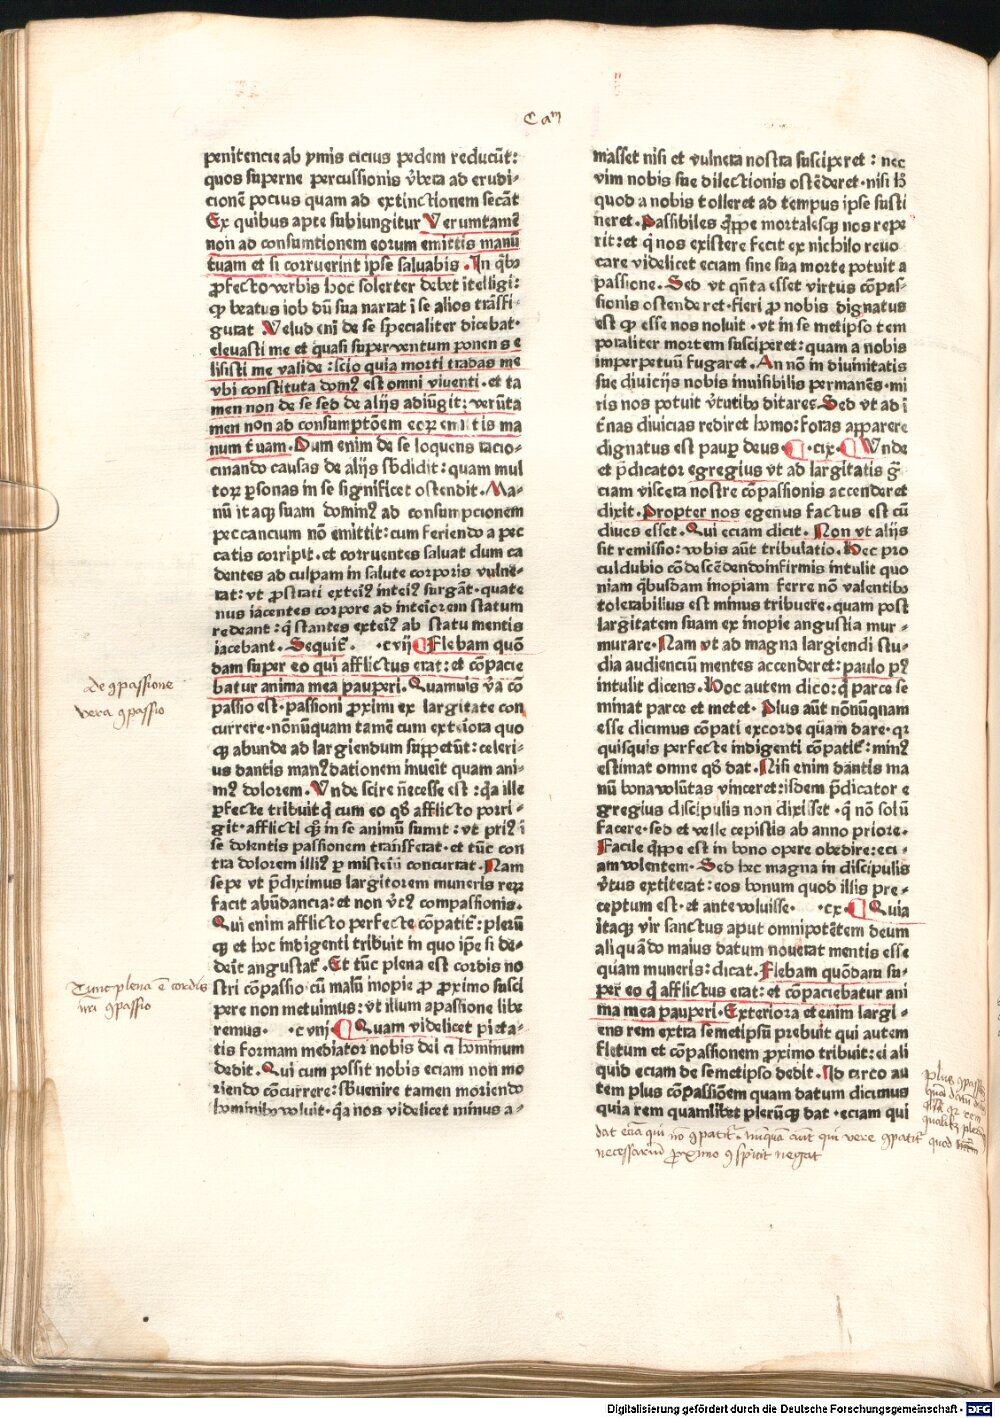 Cam
penitencie ab ymis cicius pedem reducūt:
quos superne percussionis v̄bera ad erudi-
cionē pocius quam ad extinctionem secāt
Ex quibus apte subiungitur Verumtamē
non ad consumtionem eorum emittis manū
tuam et si corruerint ipse saluabis. In qͥbꝫ
ꝓfecto verbis hoc solerter debet ītelligi:
ꝙ beatus iob dū sua narrat ī se alios trāsfi-
gurat Velud eni de se specialiter dicebat.
eleuasti me et quasi super ventum ponens e
lisisti me valide: scio quia morti tradas me
vbi constituta domꝰ est omni viuenti. et ta
men non de se sed de alijs adiūgit: verūta
men non ad consumptōem eoꝝ emittis ma
num tuam. Dum enim de se loquens racio-
cinando causas de alijs sb̄didit: quam mul
toꝝ ꝑsonas in se significet ostendit. Ma-
nū itaqꝫ suam dominꝰ ad consumpcionem
peccancium nō emittit: cum feriendo a pec
catis corripit. et corruentes saluat dum ca
dentes ad culpam in salute corporis vulne-
rat: vt ꝓstrati exteiꝰ inteiꝰ surgāt. quate
nus iacentes corpore ad inteiorem statum
redeant: qͥ stantes exteiꝰ ab statu mentis
iacebant. Sequit᷑. .cvij. Flebam quō
dam super eo qui afflictus erat: et cōpacie
batur anima mea pauperi. Quamuis v̄a cō
passio est. passioni ꝓximi ex largitate con
currere. nōnūquam tamē cum exteriora quo
qꝫ abunde ad largiendum suppetūt: celeri-
us dantis manꝰ dationem inueīt quam ani-
mꝰ dolorem. Vnde scire ñecesse est: qͣ ille
ꝑfecte tribuit qͥ cum eo qd̄ afflicto porri-
git. afflicti qͣꝫ in se animū sumit: vt priꝰ ī
se dolentis passionem transferat. et tūc con
tra dolorem illiꝰ ꝑ misteiū concurrat. Nam
sepe vt p̄diximus largitorem muneris reꝝ
facit abūdancia: et non v̄tꝰ compassionis.
Qui enim afflicto perfecte cōpatit᷑: plerū
qꝫ et hoc indigenti tribuit in quo ip̄e si de-
deīt angustat᷑. Et tūc plena est cordis no
stri cōpassio cū malū inopie ꝓ ꝓximo susci
pere non metuimus: vt illum apassione libe
remus. .cviij. Quam videlicet pieta-
tis formam mediator nobis dei ⁊ hominum
dedit. Qui cum possit nobis eciam non mo
riendo cōcurrere: sb̄uenire tamen moriendo
hominibꝫ voluit. qͣ nos videlicet minus a-
masset nisi et vulnera nostra susciperet: nec
vim nobis sue dilectionis ostēderet. nisi hͦ
quod a nobis tolleret ad tempus ipse susti
neret. Passibiles qͥppe mortalesqꝫ nos repe
rit: et qͥ nos existere fecit ex nichilo reuo
care videlicet eciam sine sua morte potuit a
passione. Sed vt qͣnta esset virtus cōpas-
sionis ostenderet. fieri ꝓ nobis dignatus
est ꝙ esse nos noluit. vt in se metipso tem
poraliter mortem susciperet: quam a nobis
imperpetuū fugaret. An nō in diuinitatis
sue diuicijs nobis inuisibilis permanēs. mi
ris nos potuit v̄tutibꝫ ditare. Sed vt ad ī
t̄nas diuicias rediret homo: foras apparere
dignatus est paup deus .cix. Vnde
et p̄dicator egregius vt ad largitatis gͣ
ciam viscera nostre cōpassionis accenderet
dixit. Propter nos egenus factus est cū
diues esset. Qui eciam dicit. Non vt alijs
sit remissio: vobis aūt tribulatio. Hec pro
cul dubio cōdescēdendo infirmis intulit quo
niam qͥbusdam inopiam ferre nō valentibꝫ
tolerabilius est minus tribuere. quam post
largitatem suam ex inopie angustia mur-
murare. Nam vt ad magna largiendi stu-
dia audienciū mentes accenderet: paulo pꝰ
intulit dicens. Hoc autem dico: qͥ parce se
minat parce et metet. Plus aūt nōnūqnam
esse dicimus cōpati ex corde quam dare. qꝛ
quisquis perfecte indigenti cōpatit᷑: minꝰ
estimat omne qd̄ dat. Nisi enim dantis ma
nū bona volūtas vinceret: isdem p̄dicator e
gregius discipulis non dixisset. qͥ nō solū
facere. sed et velle cepistis ab anno priore.
Facile qͥppe est in bono opere obedire: eci-
am nolentem. Sed hec magna in discipulis
v̄tus extiterat: eos bonum quod illis pre-
ceptum est. et ante voluisse. .cx. Quia
itaqꝫ vir sanctus aput omnipotētem deum
aliquādo maius datum nouerat mentis esse
quam muneris: dicat. Flebam quōdam su-
per eo qͥ afflictus erat: et cōpaciebatur ani
ma mea pauperi. Exteriora etenim largi-
ens rem extra semetipsū prebuit qui autem
fletum et cōpassionem ꝓximo tribuit: ei ali
quid eciam de semetipso dedit. Id circo au
tem plus cōpassiōem quam datum dicimus
quia rem quamlibet plerūqꝫ dat. eciam qui
de ꝯpassione
vera ꝯpassio
Tunc plena ē cordis
nr̄i ꝯpassio
dat eciā qui nō ꝯpatit᷑. nūquā aūt qui vere ꝯpatit᷑ quod
necessariū ꝓximo ꝯspicit negat
Digitalisierung gefördert durch die Deutsche Forschungsgemeinschaft - DFG